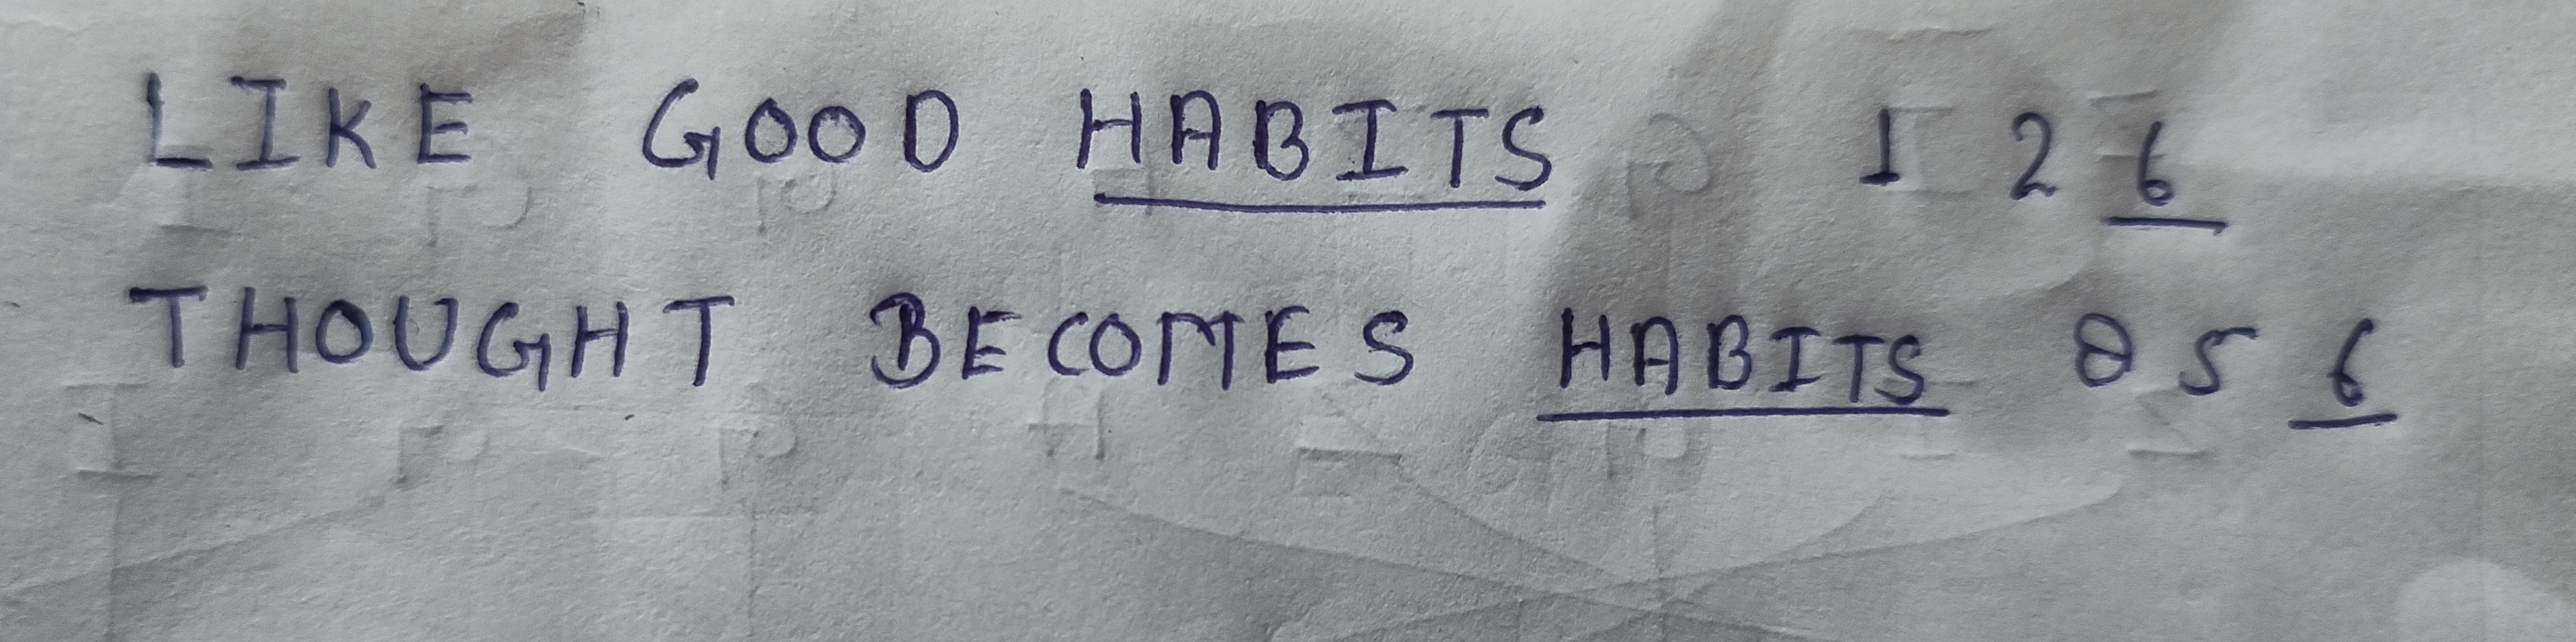 LIKE GOOD HABITS 1 2 6
THOUGHT BECOMES HABITS 0 5 6